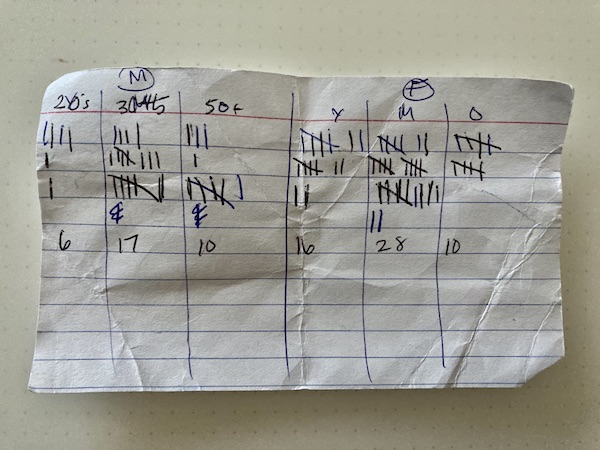 M F
20's 30/45 50+ Y M O
6 17 10 16 28 10